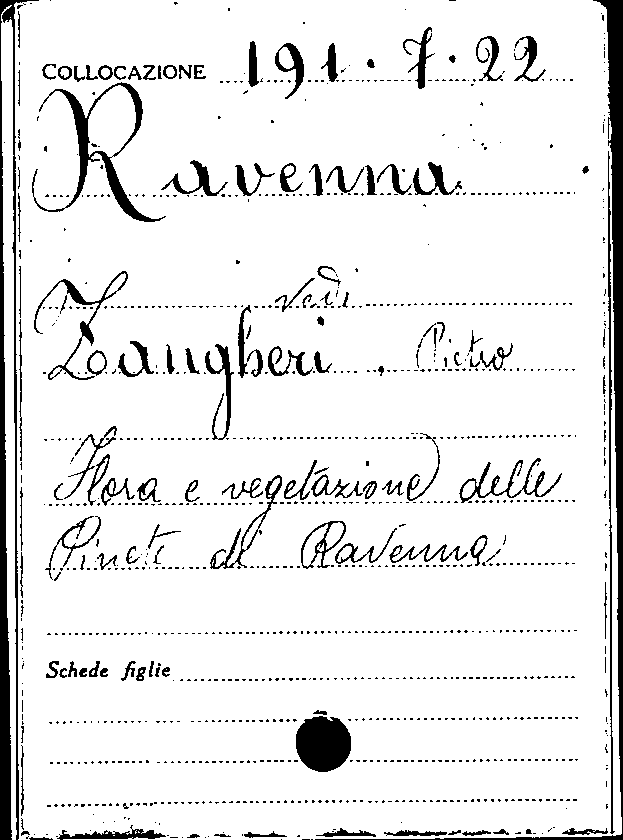 COLLOCAZIONE 191.7.22
Ravenna
vedi
Zangheri, Pietro
Flora e vegetazione delle
Pinete di Ravenna
Schede figlie